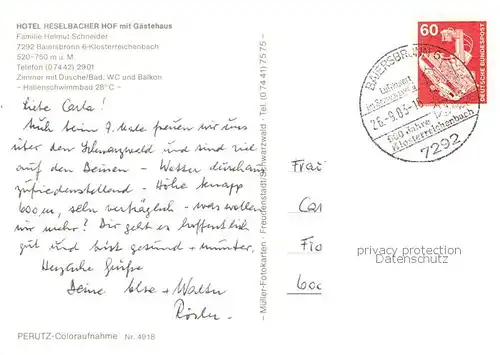 HOTEL HESELBACHER HOF mit Gästehaus
Familie Helmut Schneider
7292 Baiersbronn 6-Klosterreichenbach
520-750 m ü. M
Telefon (07442) 2901
Zimmer mit Dusche/Bad, WC und Balkon
- Hallenschwimmbad 28°C -
Liebe Carla!
Auch beim 7. Male freuen wir uns
über den Schwarzwald und sind viel
auf den Beinen - Wetter durchaus
zufriedenstellend - Höhe knapp
600 m, sehr verträglich - was wollen
wir mehr? Dir geht es hoffentlich
gut und bist gesund + munter.
Herzliche Grüße
Deine Else + Walter
PERUTZ-Coloraufnahme Nr. 4918
- Müller-Fotokarten - Freudenstadt/Schwarzwald - Tel. (07441) 7575 -
60
DEUTSCHE BUNDESPOST
BAIERSBRONN 6
Luftkurort
900 Jahre
Klosterreichenbach
7292
Frau
Car
600
privacy protection
Datenschutz